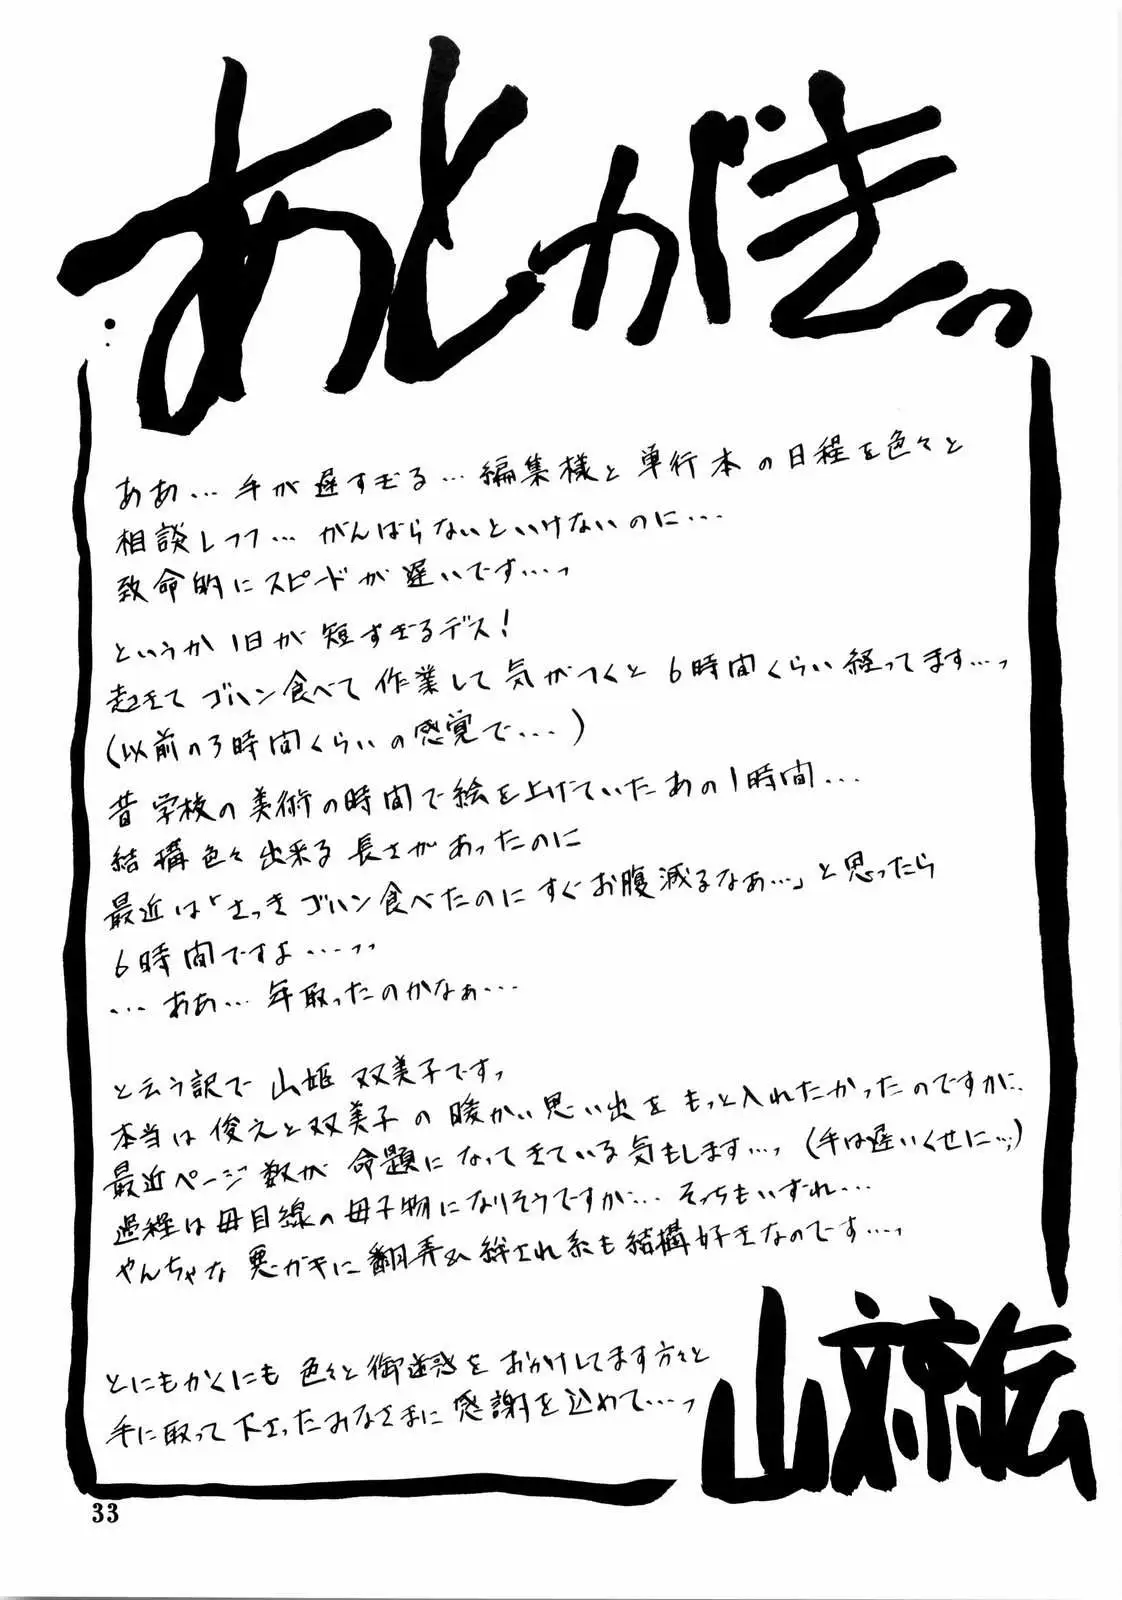 あとがきっ
ああ... 手が遅すぎる... 編集様と単行本の日程を色々と
相談しつつ... がんばらないといけないのに...
致命的にスピードが遅いです...っ
というか1日が短すぎるデス!
起きてゴハン食べて作業して気がつくと6時間くらい経ってます...っ
(以前の3時間くらいの感覚で...)
昔学校の美術の時間で絵を上げていたあの1時間...
結構色々出来る長さがあったのに
最近は「さっきゴハン食べたのにすぐお腹減るなぁ...」と思ったら
6時間ですよ...っっ
... ああ... 年取ったのかなぁ...
と云う訳で 山姫 双美子ですっ
本当は俊之と双美子の暖かい思い出をもっと入れたかったのですがに
最近ページ数が命題になってきている気もします...っ (手は遅いくせに...;)
過程は母目線の母子物になりそうですが... そっちもいずれ...
やんちゃな悪ガキに翻弄&絆され系も結構好きなのです...っ
とにもかくにも色々と御迷惑をおかけしてます方々と
手に取って下さったみなさまに感謝を込めて...っ
山文京伝
33